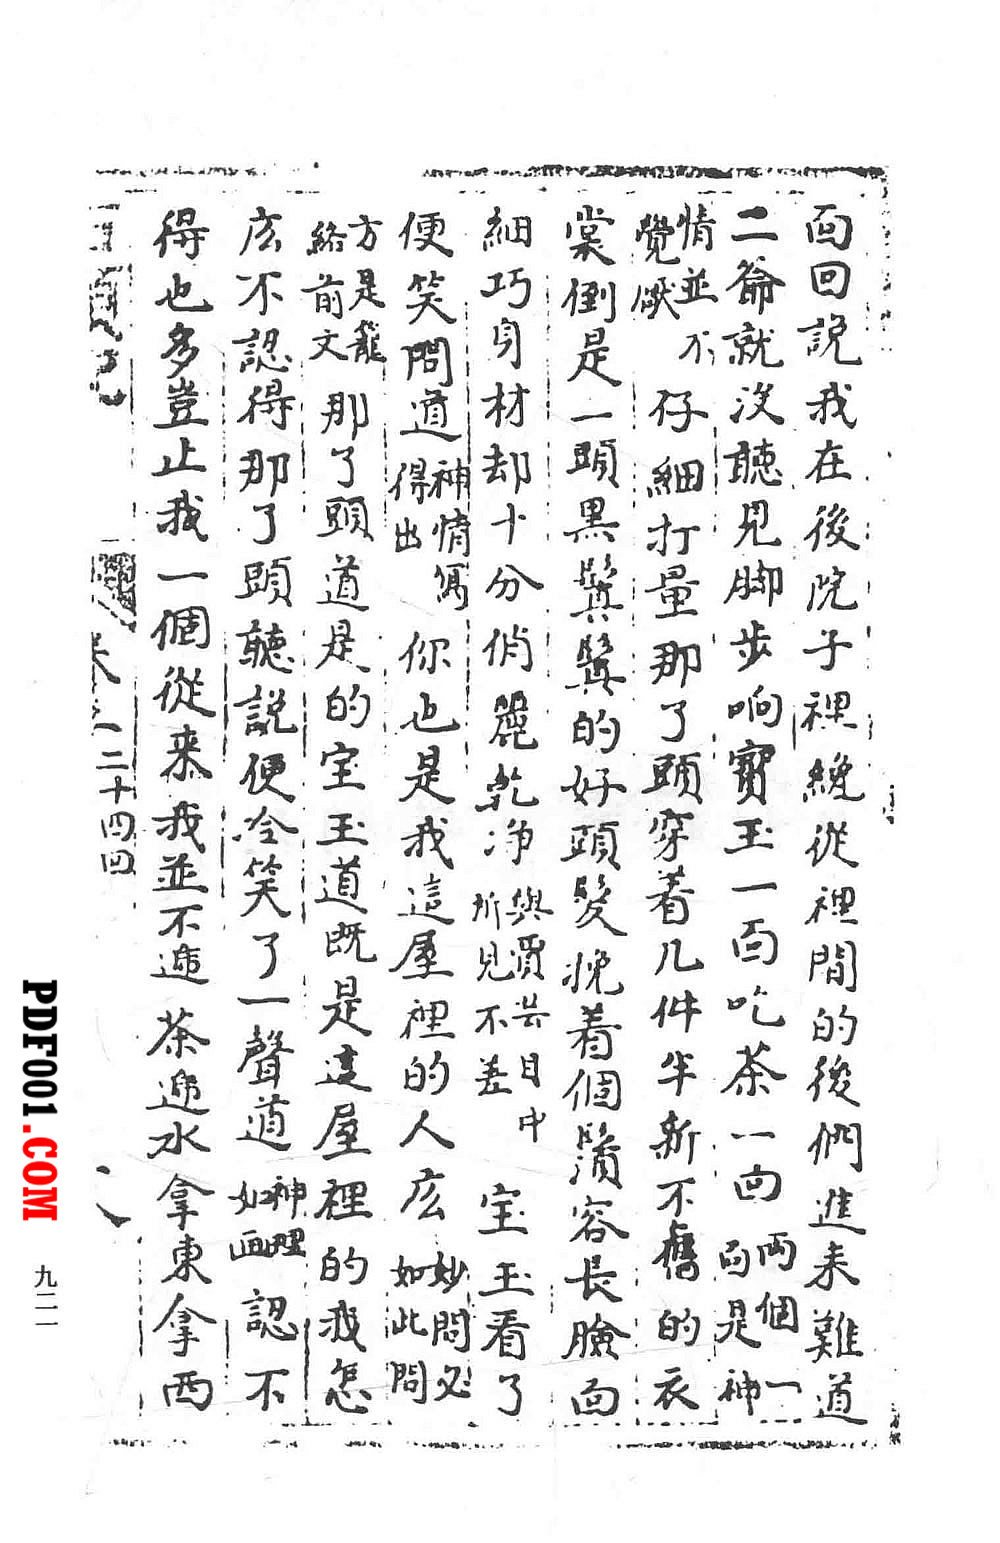 面回說我在後院子裡纔從裡間的後們進来難道
二爺就沒聽見脚步响寳玉一面吃茶一面兩個一面是神
情並不覺厭仔細打量那了頭穿着几件半新不舊的衣
裳倒是一頭黒鬒鬒的好頭髮挽着個鬢容長臉面
細巧身材却十分俏麗乾净與賈芸目中所見不差宝玉看了
便笑問道神情寫得出你也是我這屋裡的人庅妙問必如此問
方是籠絡前文那了頭道是的宝玉道既是這屋裡的我怎
庅不認得那了頭聽說便冷笑了一聲道神理如画認不
得也多豈止我一個從来我並不逓茶逓水拿東拿西
二十四回
九二一
PDF001.COM